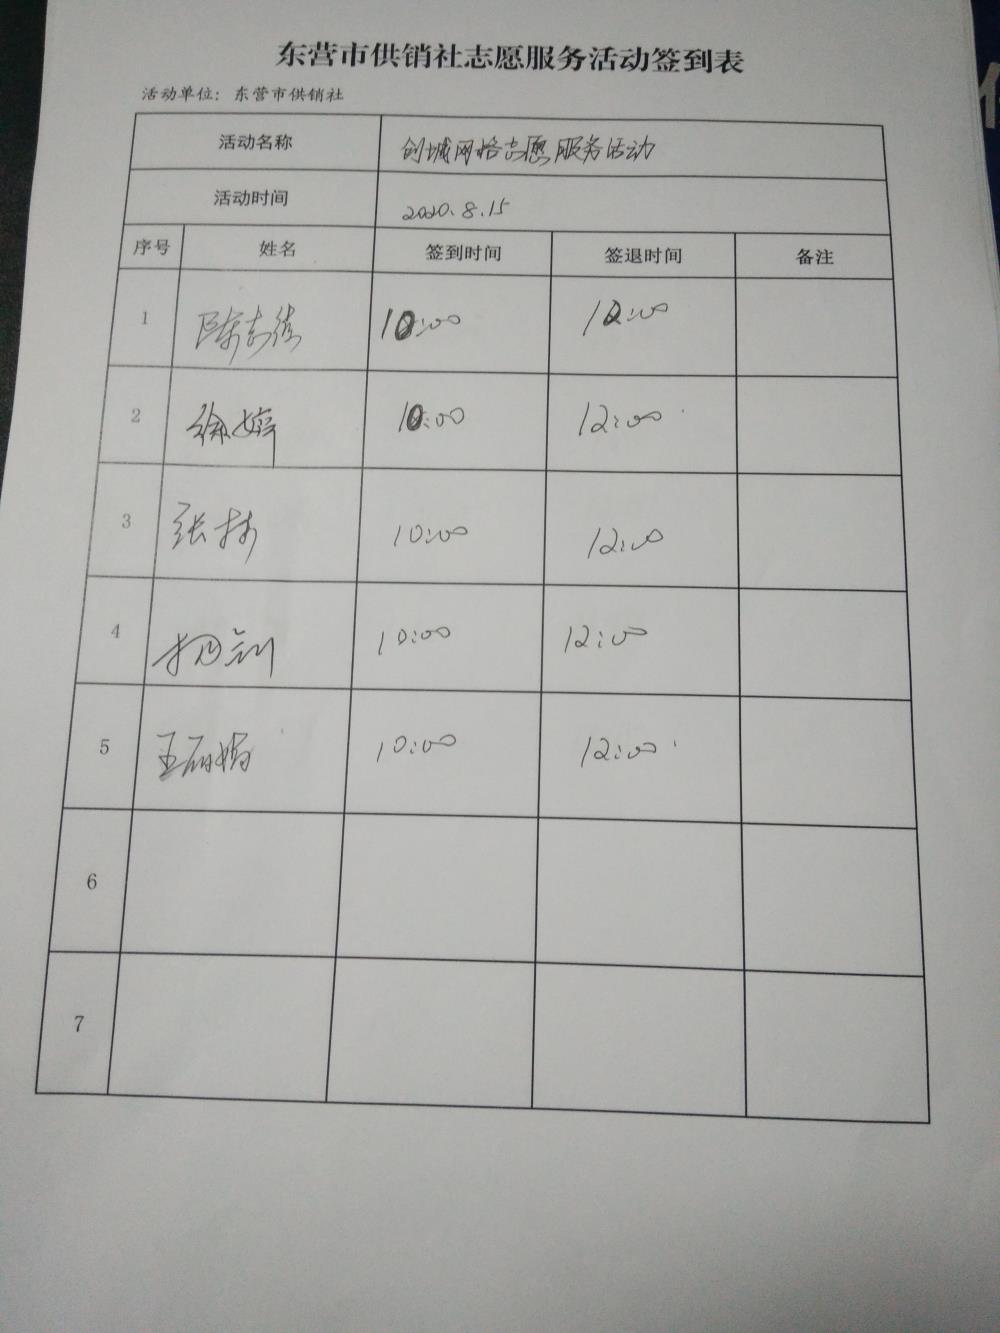 东营市供销社志愿服务活动签到表
活动单位：东营市供销社
活动名称 创城网格志愿服务活动
活动时间 2020.8.15
序号 姓名 签到时间 签退时间 备注
1 陈志 10:00 12:00
2 徐婷 10:00 12:00
3 张 10:00 12:00
4 杨 10:00 12:00
5 王丽娟 10:00 12:00
6
7